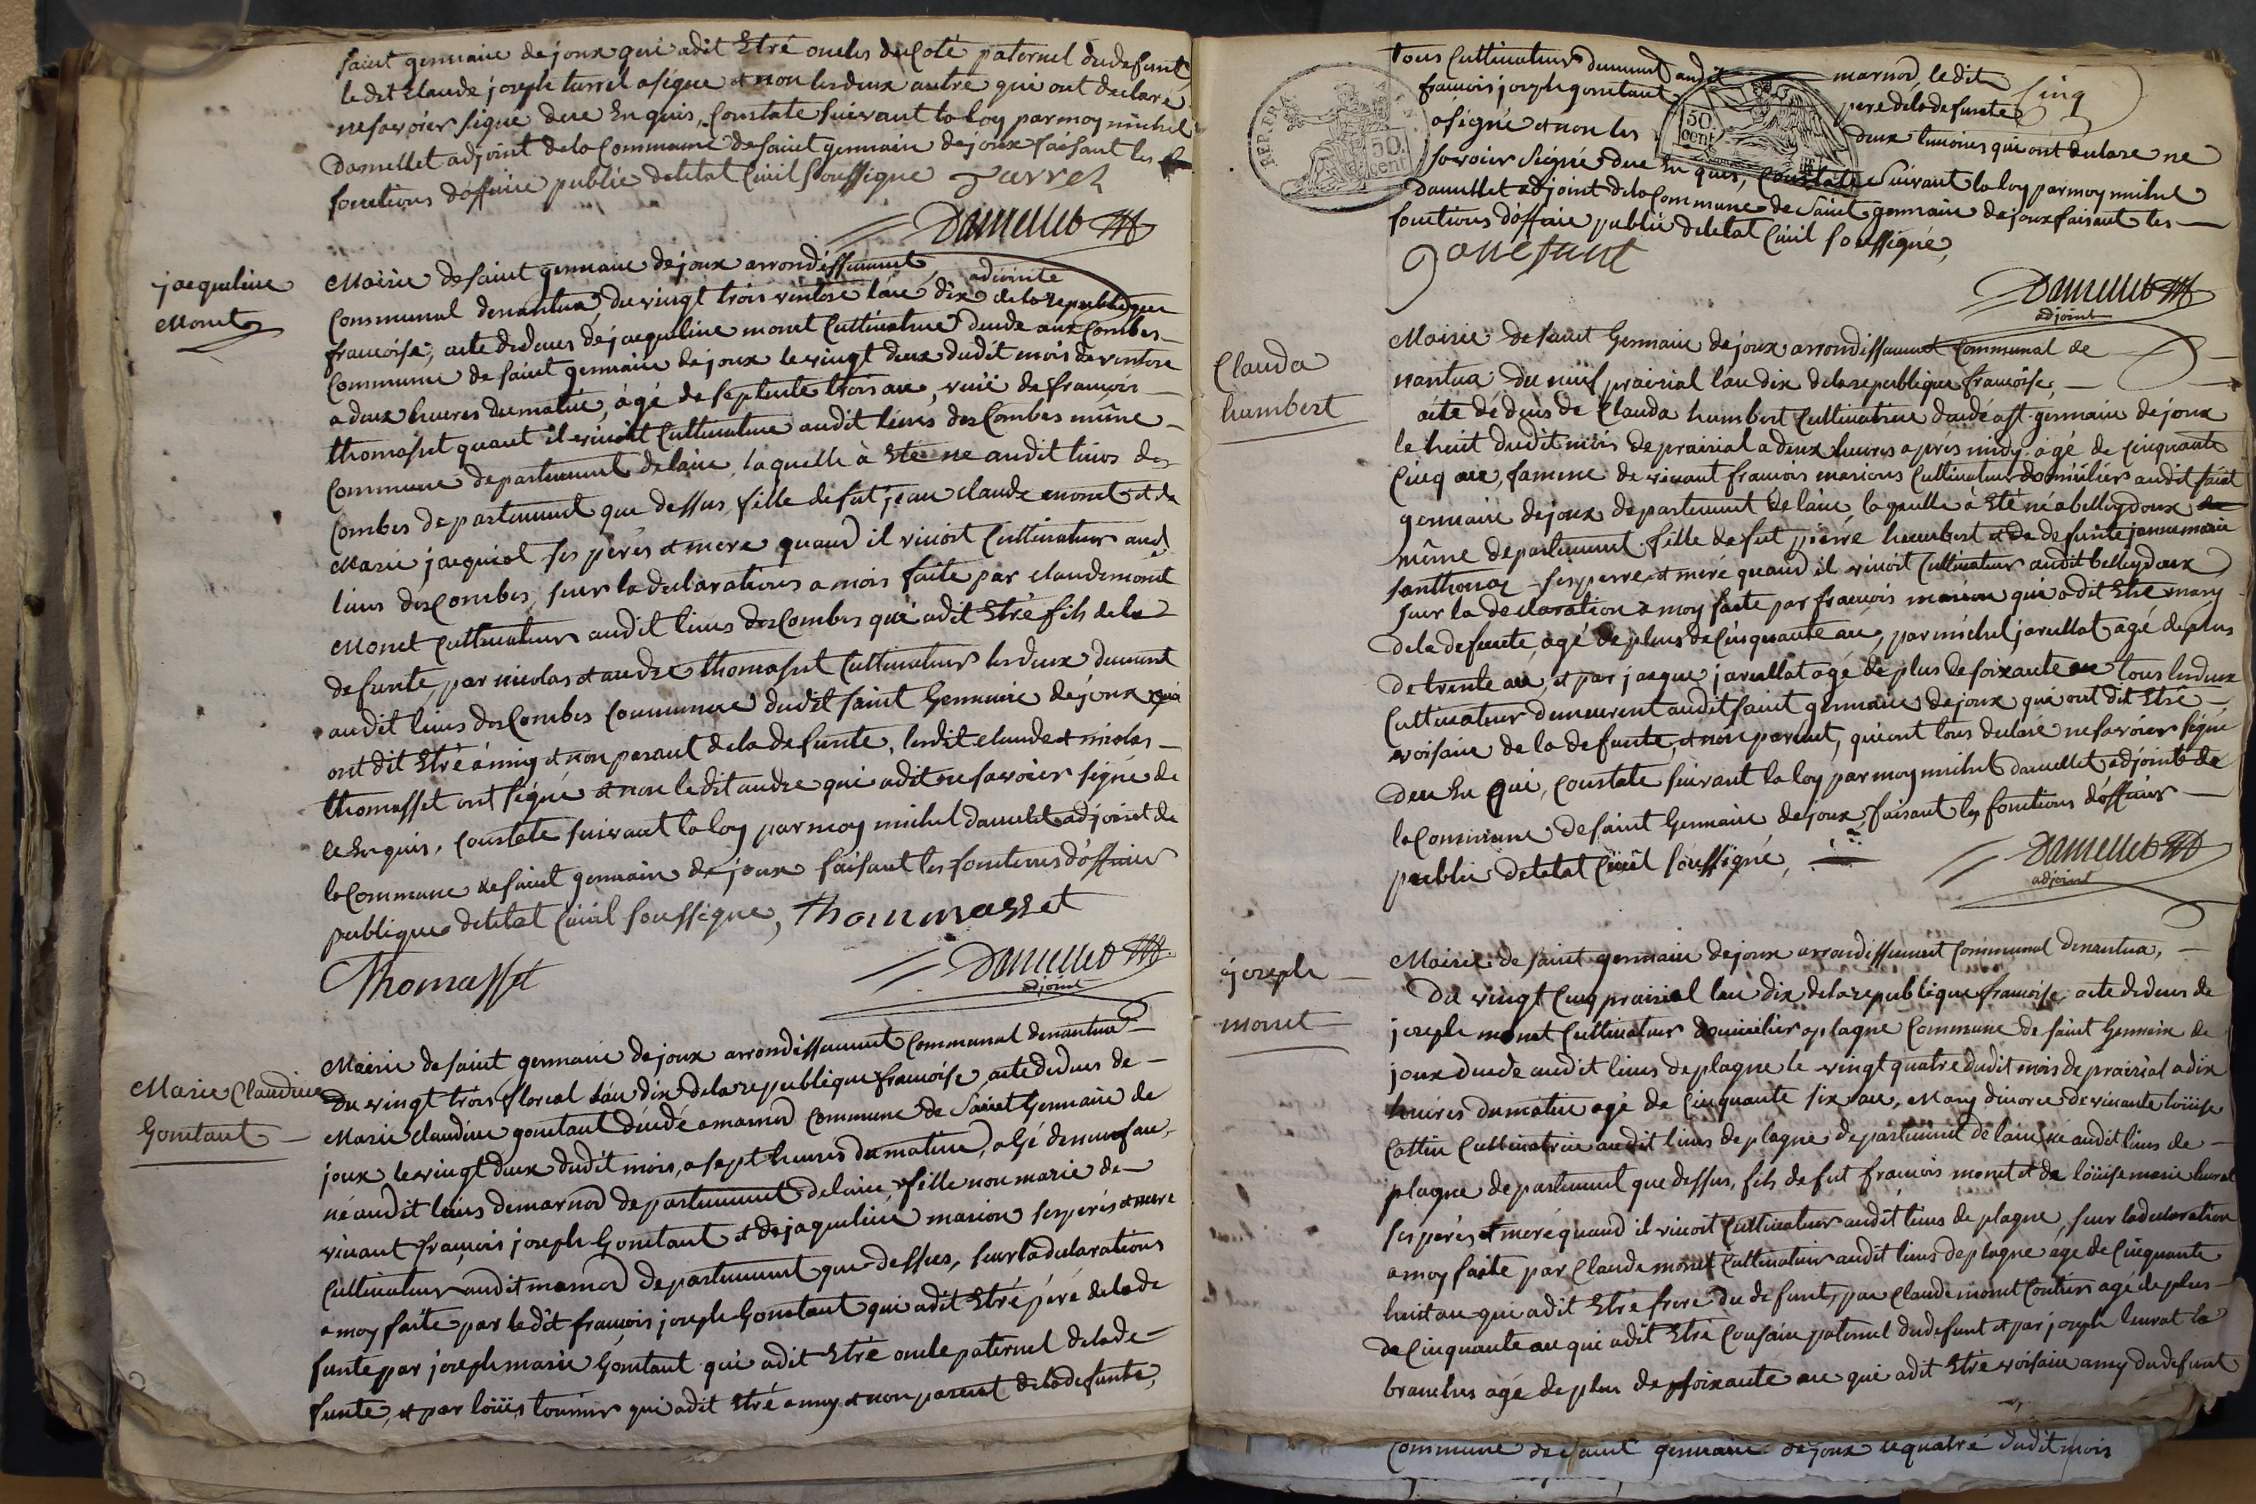 saint germain de joux qui a dit Etré oncles du Coté paternel du defunt
ledit Claude joseph turrel a signe et non les deux autre qui ont declaré
ne savoier signe de ce En quis, Constate suivant la loy par moy michel
Damellet adjoint de la Commune de saint germain de joux faisant les
fonctions d'offisie public de letat Civil soussigne Turrel
Damellet
jaequeline
Monet
Mairie de saint germain de joux arrondissement
adjointe
Communal denantua, du vingt trois ventose l'an dix de la republique
francoise; acte de deces de jacqueline monet Cultivatrice decede aux Combes
Commune de saint germain de joux le vingt deux dudit mois de ventose
a deux heures du matin, agé de septente trois an, veuve de francois
thomaset quant il vivoit Cultivateur audit lieux des Combes même
Commune departement de lain, laquelle à Eté ne audit lieus des
Combes departement que dessus, fille de fut jean claude monet et de
Marie jacquiot ses perés et mere quand il vivoit Cultivateur aud
lieus des Combes, sur la declarations a mois faite par claude monet
Monet Cultivateur audit lieus des Combes qui a dit Etré fils de la
defunte, par nicolas et andre thomaset Cultivateur les deux demeurent
audit lieus des Combes Commune dudit saint Germain de joux qui
ont dit Etré amiy et non parant de la defunte, ledit claude et nicolas
thomasset ont signé et non ledit andre qui a dit ne savoier signé de
ce En quis, Constate suivant la loy par moy michel damellet adjoint de
la Commune de saint germain de joux faisant les fonctions d'offisier
publique de letat Civil soussigne, Thommasset
Thomasset
Damellet
adjoint
Marie Claudine
Gonetant
Mairie de saint germain de joux arrondissement Communal denantua
Du vingt trois floreal L'an dix de la republique francoise, acte de deces de
Marie claudine gonetant decedé a marnod Commune de Saint Germain de
joux le vingt deux dudit mois, a sept heures du matin, aGé de neuf an,
né audit lieus de marnod departement de lain, fille non marié de
vivant francois joseph Gonetant et de jaqueline marion ses perés et mere
Cultivateur audit marnod departement que dessus, sur la declarations
a moy faite par ledit francois joseph Gonetant qui a dit Etré péré de la de
funte par joseph marie Gonetant qui a dit Etré oncle paternel de la de
funte, et par loüis tournier qui a dit Etré amy et non parent de la defunte,
tous Cultivateur demeurent audit marnod, ledit
francois joseph gonetant pere de la defunte Cinq
a signé et non les deux temoins qui ont declare ne
50 cent
50. cent
savoier signé de ce En quis, Constate Suivant la loy par moy michel
Damellet adjoint de la Commune de Saint germain de joux faisant les
fonctions d'offisie public de letat Civil soussigné,
Gonetant
Damellet
adjoint
Clauda
humbert
Mairie de saint Germain de joux arrondissement Communal de
nantua du neuf prairial l'an dix de la republique francoise,
acte de deces de Clauda humbert Cultivatrice decedé a st. germain de joux
le huit dudit mois de prairial a deux heures apres midy agé de Cinquante
Cinq an, famme de vivant francois marions Cultivateur domicilier audit saint
germain de joux departement de lain, laquelle à Eté né a belleydoux
même departement fille de fut pierre humbert et de defunte jeanne marie
santhonax ses perre et meré quand il vivoit Cultivateur audit belleydoux
sur la declaration a moy faite par francois marion qui a dit Etre mary
de la defunte, agé de plus de Cinquante an, par michel jarullat agé de plus
de trente an, et par jacque jarullat agé de plus de soixante an tous les deux
Cultivateur demeurent audit saint germain de joux qui ont dit Etré
voisain de la defunte, et non parent, qui ont tous declaré ne savoier signé
de ce En qui, Constate suivant la loy par moy michel damellet adjoint de
la Commune de saint Germain de joux faisant les fonctions d'offisier
public de letat Civil soussigné,
Damellet
adjoint
joseph
monet
Mairie de saint germain de joux arrondissement Communal denantua,
Du vingt Cinq prairial l'an dix de la republique francoise, acte de deces de
joseph monet Cultivateur domicilier a plagne Commune de saint Germain de
joux decede audit lieus de plagne le vingt quatre dudit mois de prairial a dix
heures du matin agé de Cinquante six an, Mary divorcé de vivante loüise
Cottin Cultivatrice audit lieus de plagne departement de lain né audit lieus de
plagne departement que dessus, fils de fut francois monet et de loüise marie leurat
ses perés et meré quand il vivoit Cultivateur audit lieus de plagne, sur la declaration
a moy faite par Claude monet Cultivateur audit lieus de plagne age de Cinquante
huit an qui a dit Etré frere du defunt, par Claude monet Cottin agé de plus
de Cinquante an qui a dit Etré Cousain paternel du defunt et par joseph leurat la
branches agé de plus de soixante an qui a dit Etre voisain amy du defunt
Commune de saint germain de joux le quatre dudit mois